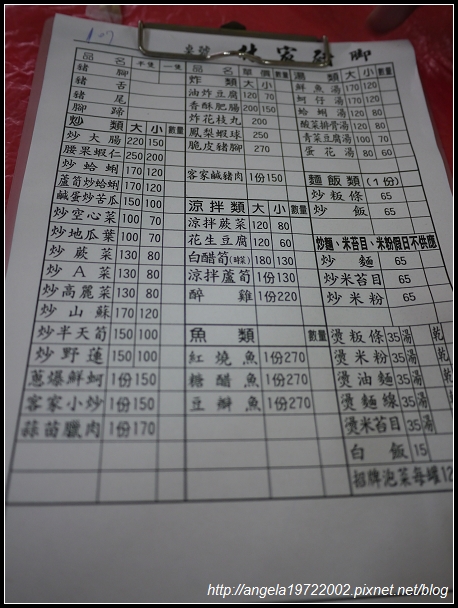 桌號
豬腳
品名 半隻 一隻 數量
豬腳
豬舌
豬尾
腳蹄
炒類 大 小 數量
炒大腸 220 150
腰果蝦仁 250 200
炒蛤蜊 170 120
蘆筍炒蛤蜊 170 120
鹹蛋炒苦瓜 150 100
炒空心菜 130 100
炒地瓜葉 100 70
炒蕨菜 130 80
炒A菜 130 80
炒高麗菜 130 80
炒山蘇 170 120
炒半天筍 150 100
炒野蓮 150 100
蔥爆鮮蚵 1份150
客家小炒 1份150
蒜苗臘肉 1份170
品名 單價 數量
炸類 大 小
油炸豆腐 120 70
香酥肥腸 200 150
炸花枝丸 200
鳳梨蝦球 250
脆皮豬腳 270
客家鹹豬肉 1份150
涼拌類 大 小 數量
涼拌蕨菜 120 80
花生豆腐 120 60
白醋筍(時菜) 180 130
涼拌蘆筍 1份130
醉雞 1份220
魚類 數量
紅燒魚 1份270
糖醋魚 1份270
豆瓣魚 1份270
湯類 大 小 數量
鮮魚湯 170 120
蚵仔湯 170 120
蛤蜊湯 120 80
酸菜排骨湯 120 80
青菜豆腐湯 100 80
蛋花湯 80 60
麵飯類(1份)
炒粄條 65
炒飯 65
炒麵、米苔目、米粉假日不供應
炒麵 65
炒米苔目 65
炒米粉 65
燙粄條 35 湯 乾
燙米粉 35 湯 乾
燙油麵 35 湯 乾
燙麵線 35 湯 乾
燙米苔目 35 湯
白飯 15
招牌泡菜每罐12
http://angela19722002.pixnet.net/blog